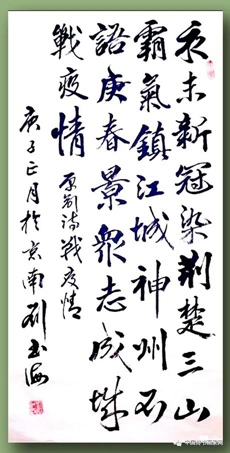 亥末新冠染荆楚三山
霸氣鎮江城神州不
語庚春景衆志成城
戰疫情
原創詩戰疫情
庚子正月於京南劉玉海